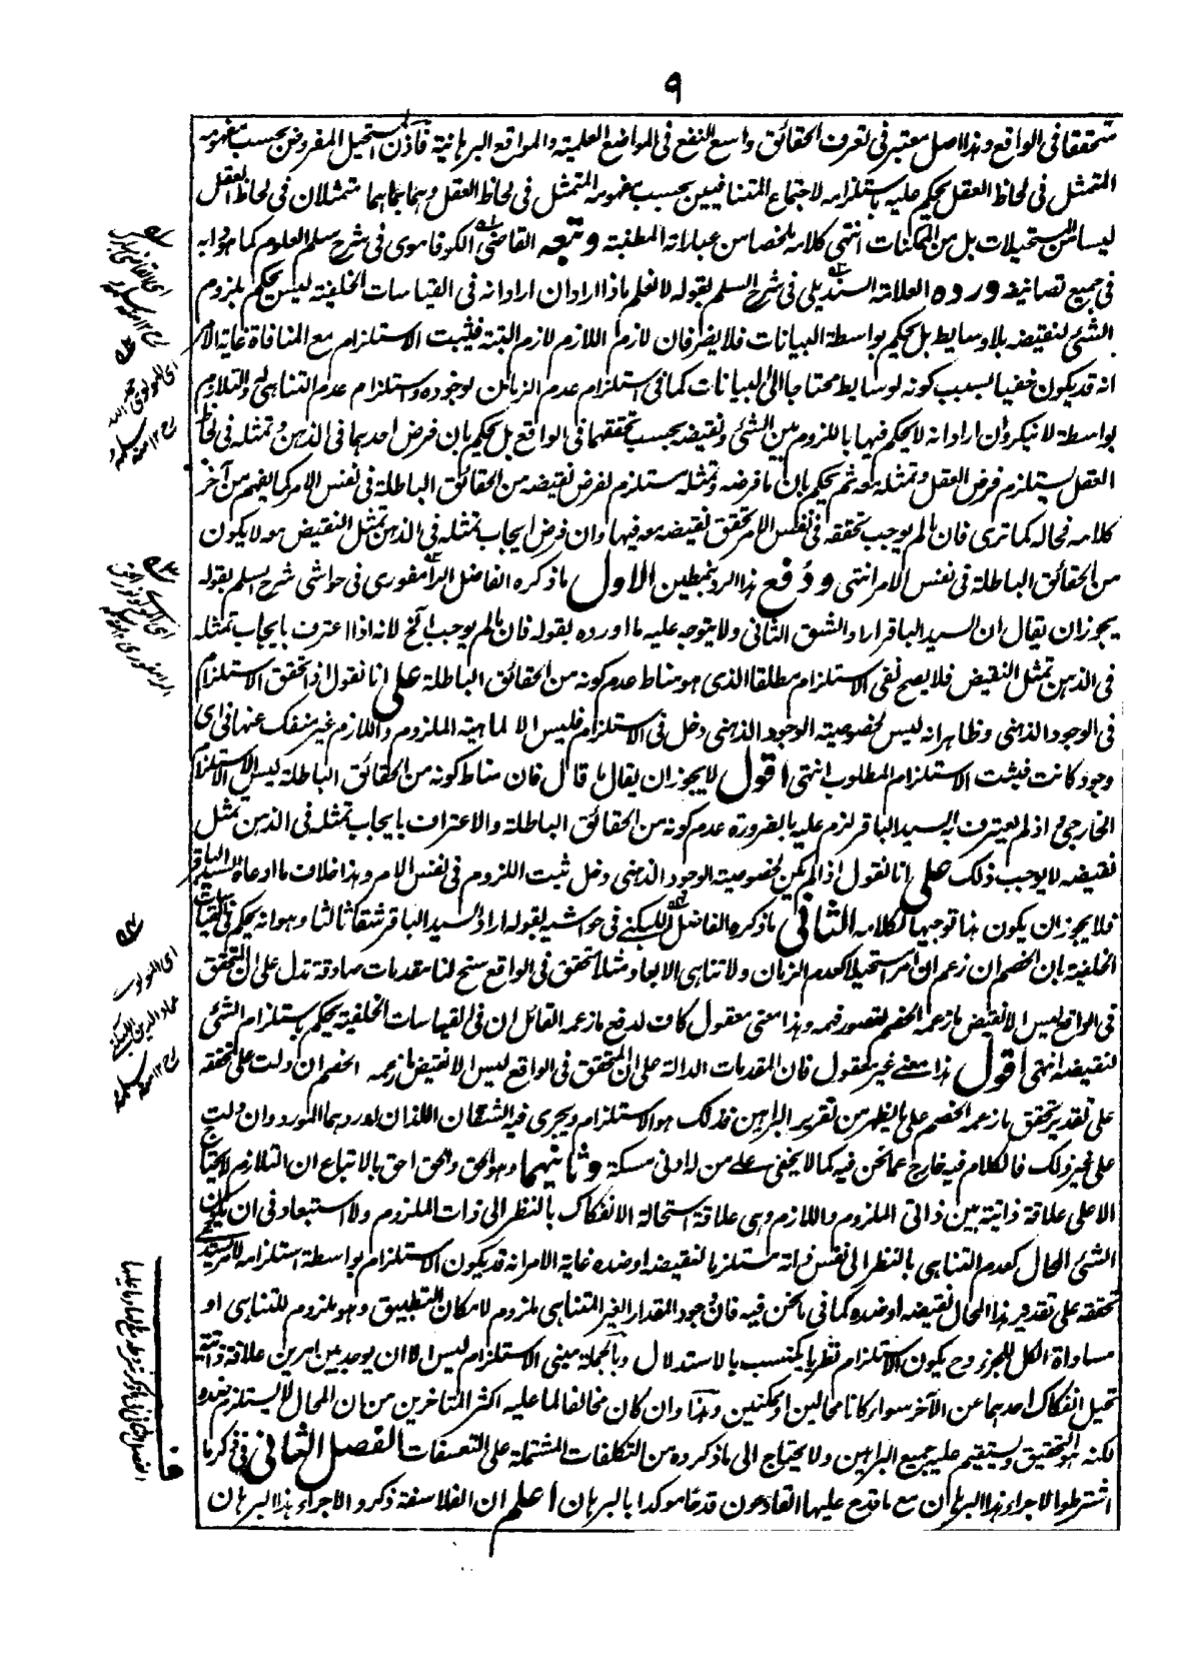 ٩
متحققا فى الواقع وهذا اصل معتبر فى تعرف الحقائق واسع النفع فى المواضع العلمية والمواقع البرهانية فاذن المستحيل المفروض بحسب مفهومه
المتمثل فى لحاظ العقل يحكم عليه باستلزامه لاجتماع المتنافيين بحسب مفهومه المتمثل فى لحاظ العقل وهما بما هما متمثلان فى لحاظ العقل
ليسا من المستحيلات بل من الممكنات انتهى كلامه ملخصا من عباراته المطنبة وتبعه القاضى الكوفاموى فى شرح سلم العلوم كما هو دابه
فى جميع تصانيفه ورده العلامة السنديلى فى شرح السلم بقوله لا نعلم ماذا اراد ان اراد انه فى القياسات الخلفية ليس يحكم بلزوم
الشئ لنقيضه بلا وسايط بل يحكم بواسطة البيانات فلا يضر فان لازم اللازم لازم البتة فثبت الاستلزام مع المنافاة غاية الامر
انه قد يكون خفيا بسبب كونه لوسايط محتاجا الى البيانات كما فى استلزام عدم الزمان لوجوده واستلزام عدم التناهى له والتلازم
بواسطة لا ينكر وان اراد انه لا يحكم فيها باللزوم بين الشئ ونقيضه بحسب تحققهما فى الواقع بل يحكم بان فرض احدهما فى الذهن وتمثله فى لحاظ
العقل يستلزم فرض العقل وتمثله معه ثم يحكم بان ما فرضه وتمثله مستلزم لفرض نقيضه من الحقائق الباطلة فى نفس الامر كما يفهم من آخر
كلامه فحاله كما ترى فان ما لم يوجب تحققه فى نفس الامر تحقق نقيضه معه فيها وان فرض ايجاب تمثله فى الذهن تمثل النقيض معه لا يكون
من الحقائق الباطلة فى نفس الامر انتهى ودفع هذا الرد بنمطين الاول ما ذكره الفاضل الرامفورى فى حواشى شرح السلم بقوله
يجوز ان يقال ان السيد الباقر اراد الشق الثانى ولا يتوجه عليه ما اورده بقوله فان ما لم يوجب الخ لانه اذا اعترف بايجاب تمثله
فى الذهن تمثل النقيض فلا يصح نفى الاستلزام مطلقا الذى هو مناط عدم كونه من الحقائق الباطلة على انا نقول اذا تحقق الاستلزام
فى الوجود الذهنى وظاهر انه ليس لخصوصية الوجود الذهنى دخل فى الاستلزام فليس الا لماهية الملزوم واللازم غير منفك عنها فى اى
وجود كانت فيثبت الاستلزام المطلوب انتهى اقول لا يجوز ان يقال ما قال فان مناط كونه من الحقائق الباطلة ليس الا الاستلزام
الخارجى واذ لم يعترف به السيد الباقر لزم عليه بالضرورة عدم كونه من الحقائق الباطلة والاعتراف بايجاب تمثله فى الذهن تمثل
نقيضه لا يوجب ذلك على انا نقول اذا لم يكن لخصوصية الوجود الذهنى دخل ثبت اللزوم فى نفس الامر وهذا خلاف ما ادعاه السيد الباقر
فلا يجوز ان يكون هذا توجيها لكلامه الثانى ما ذكره الفاضل اللبكنى فى حواشيه بقوله اراد السيد الباقر شقا ثالثا وهو انه يحكم فى القياسات
الخلفية بان الخصم ان زعم ان امرا مستحيلا كعدم الزمان ولا تناهى الابعاد مثلا متحقق فى الواقع سنح لنا مقدمات صادقة تدل على ان المتحقق
فى الواقع ليس الا نقيض ما زعمه الخصم لقصور فهمه وهذا معنى معقول كاف لدفع ما زعمه القائل ان فى القياسات الخلفية يحكم باستلزام الشئ
لنقيضه انتهى اقول هذا معنى غير معقول فان المقدمات الدالة على ان المتحقق فى الواقع ليس الا نقيض ما زعمه الخصم ان دلت على تحققه
على تقدير تحقق ما زعمه الخصم على ما يظهر من تقرير البراهين فذلك هو الاستلزام ويجرى فيه الشقان اللذان اوردهما المورد وان دلت
على غير ذلك فالكلام فيه خارج عما نحن فيه كما لا يخفى على من له ادنى مسكة وثانيهما وهو الحق والحق احق بالاتباع ان التلازم لا يحتاج
الا على علاقة ذاتية بين ذاتى الملزوم واللازم وهى علاقة استحالة الانفكاك بالنظر الى ذات الملزوم ولا استبعاد فى ان يكون
الشئ المحال كعدم التناهى بالنظر الى نفس ذاته مستلزما لنقيضه او ضده غاية الامر انه قد يكون الاستلزام بواسطة استلزامه لامر يستدعى
تحققه على تقدير هذا المحال نقيضه او ضده كما فى ما نحن فيه فان وجود المقدار الغير المتناهى ملزوم لامكان التطبيق وهو ملزوم للتناهى او
مساواة الكل للجزء وح يكون الاستلزام نظريا يكتسب بالاستدلال وبالجملة مبنى الاستلزام ليس الا ان يوجد بين امرين علاقة ذاتية
تحيل انفكاك احدهما عن الآخر سواء كانا محالين او ممكنين وهذا وان كان مخالفا لما عليه اكثر المتاخرين من ان المحال لا يستلزم ضده
لكنه هو التحقيق ويستقيم عليه جميع البراهين ولا يحتاج الى ما ذكروه من التكلفات المشتملة على التعسفات الفصل الثانى فى ذكر ما
اشترطوا لاجراء هذا البرهان مع ما قدح عليها القادحون قدحا موكدا بالبرهان اعلم ان الفلاسفة ذكروا لاجراء هذا البرهان